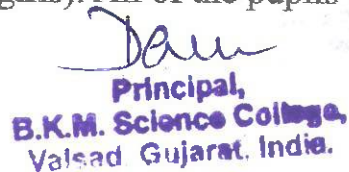 of the pupils
Principal,
B.K.M. Science College,
Valsad Gujarat, India.